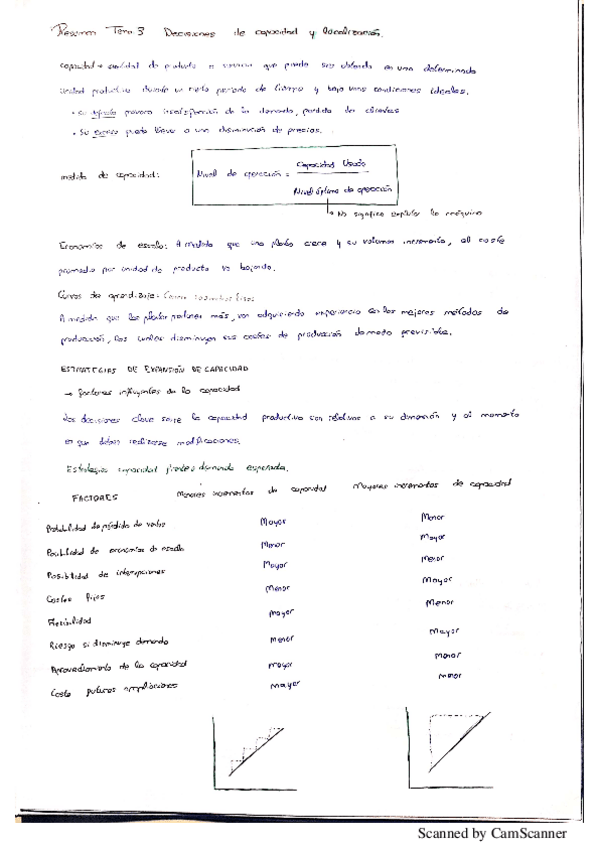 Resumen Tema 3 Decisiones de capacidad y localización.
capacidad → cantidad de producto o servicio que puede ser obtenido en una determinada
unidad productiva durante un cierto periodo de tiempo y bajo unas condiciones ideales.
· Su defecto provoca insatisfacción de la demanda, perdida de clientes
· Su exceso puede llevar a una disminución de precios.
medida de capacidad:
Nivel de operación = Capacidad Usada
Nivel óptimo de operación
↳ No significa explotar la máquina
Economías de escala: A medida que una planta crece y su volumen incrementa, el coste
promedio por unidad de producto va bajando.
Curva de aprendizaje:
A medida que las plantas producen más, van adquiriendo experiencia en los mejores métodos de
producción, los cuales disminuyen sus costes de producción de modo previsible.
ESTRATEGIAS DE EXPANSIÓN DE CAPACIDAD
→ factores influyentes de la capacidad
Las decisiones clave sobre la capacidad productiva son relativas a su dimensión y al momento
en que deben realizarse modificaciones.
Estrategias capacidad frente a demanda esperada.
FACTORES Menores incrementos de capacidad Mayores incrementos de capacidad
Probabilidad de pérdida de ventas Mayor Menor
Posibilidad de economías de escala Menor Mayor
Posibilidad de interrupciones Mayor Menor
Costes fijos Menor Mayor
Flexibilidad Mayor Menor
Riesgo si disminuye demanda Menor Mayor
Aprovechamiento de la capacidad Mayor Menor
Coste futuras ampliaciones Mayor Menor
Scanned by CamScanner